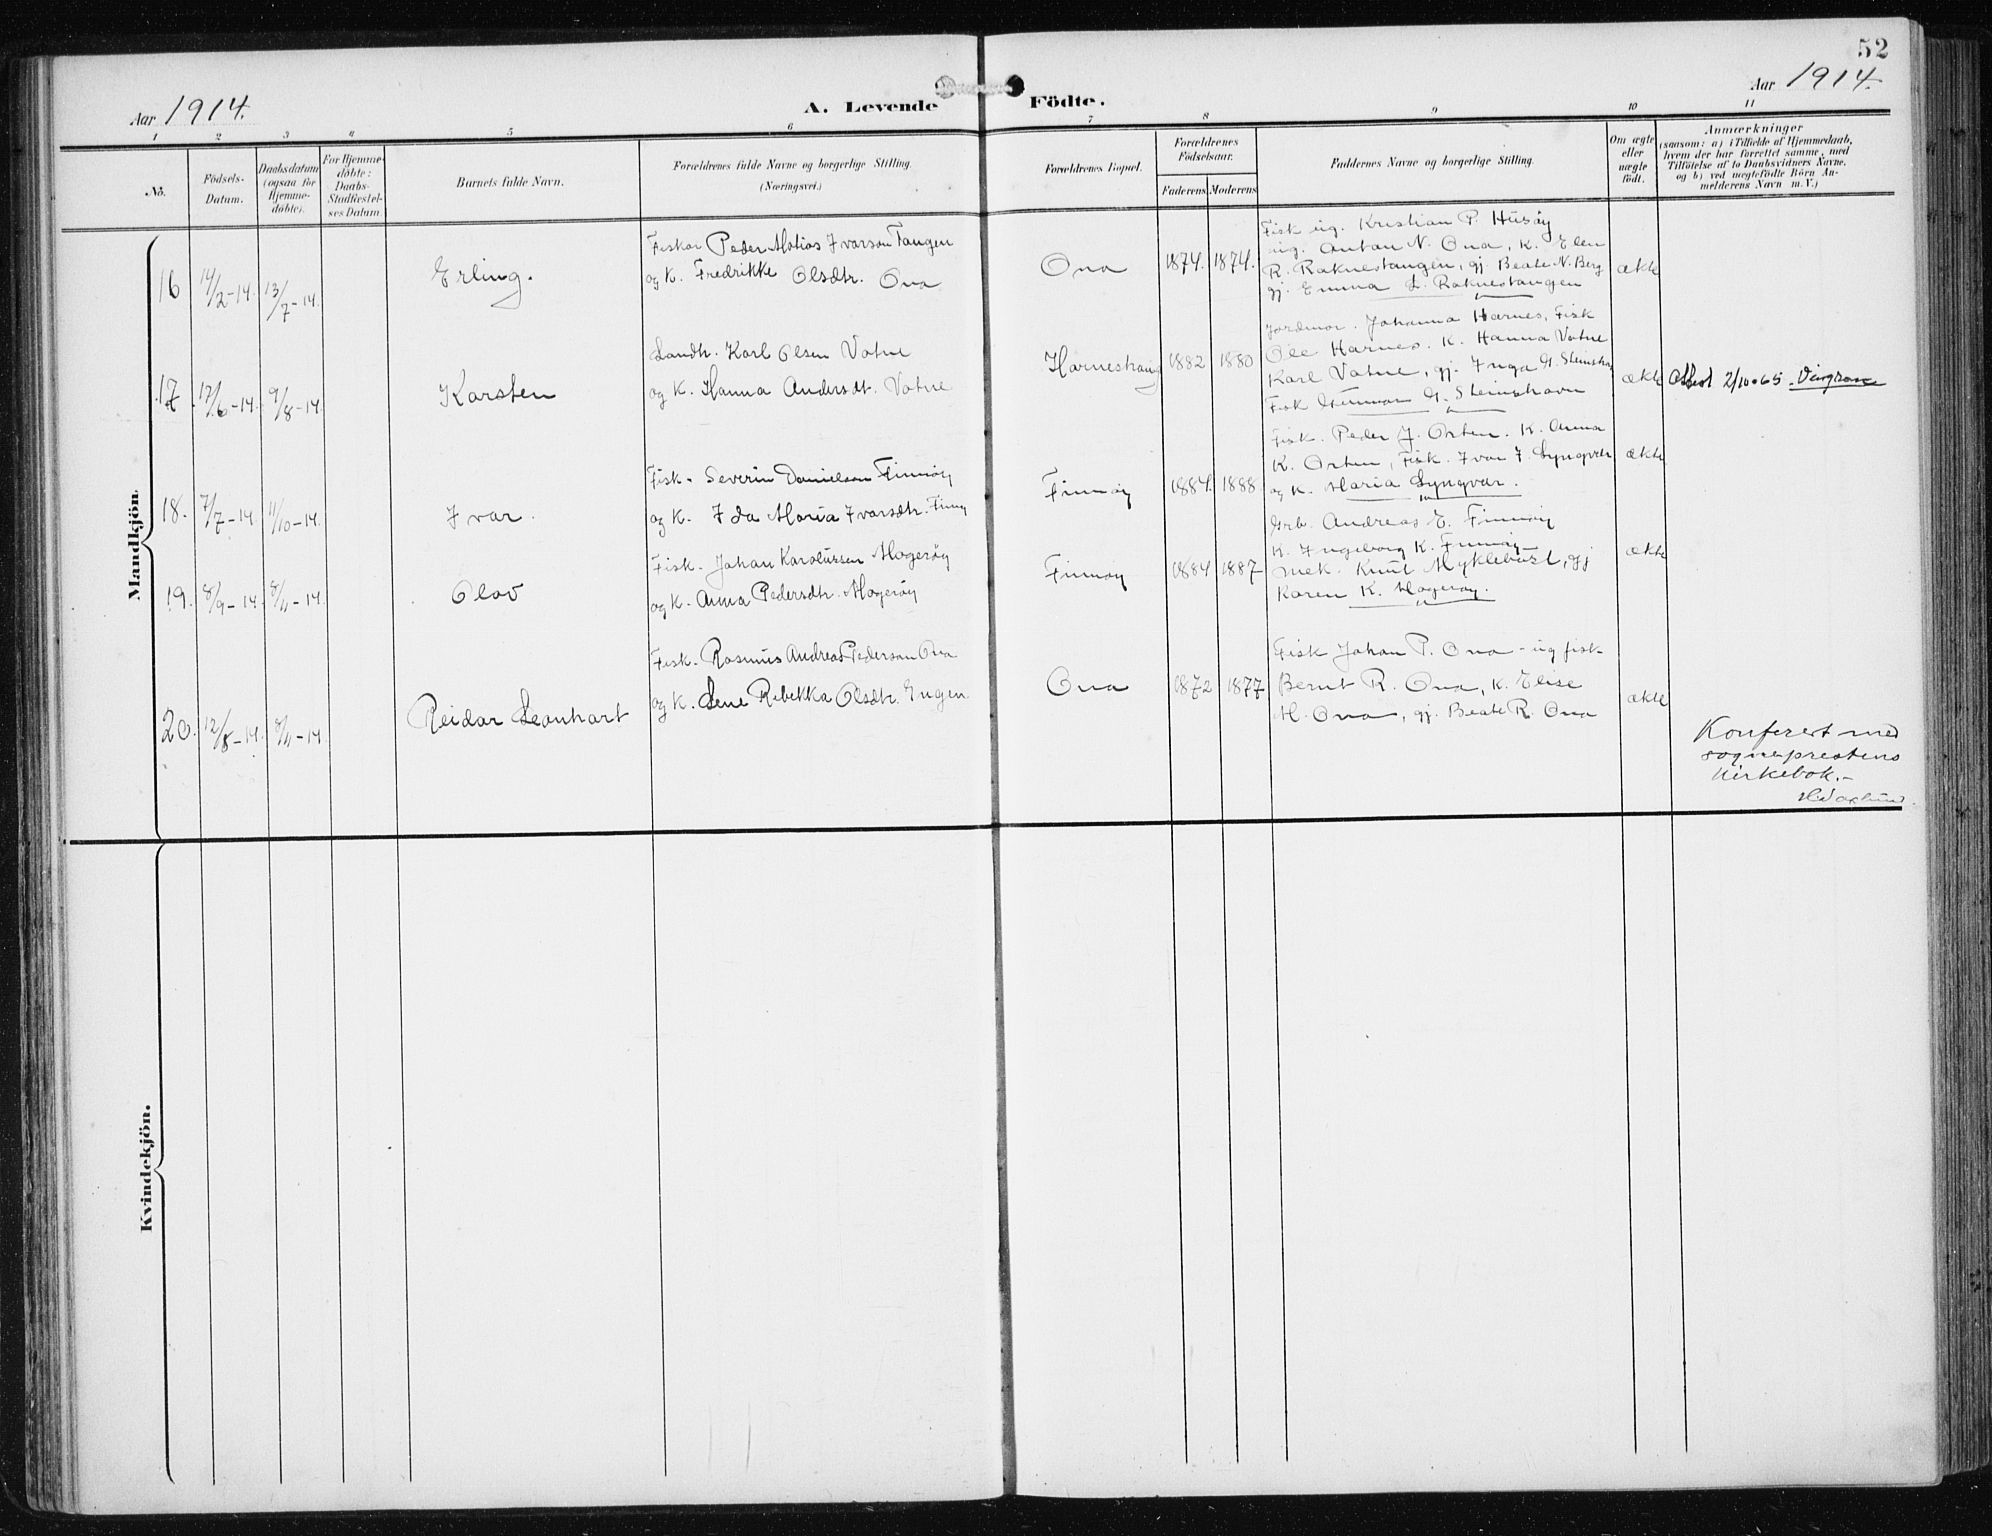 52
Aar 1914. A. Levende Födte. Aar 1914.
1 2 3 4 5 6 7 8 9 10 11
No.
Födsels-
Datum.
Daabsdatum
(ogsaa for
Hjemme-
döbte).
For Hjemme-
döbte:
Daabs-
Stadfestel-
ses Datum.
Barnets fulde Navn.
Forældrenes fulde Navne og borgerlige Stilling.
(Næringsvei.)
Forældrenes Bopæl.
Forældrenes
Födselsaar.
Faderens Moderens
Faddernes Navne og borgerlige Stilling.
Om ægte
eller
uægte
födt.
Anmærkninger
(saasom: a) i Tilfælde af Hjemmedaab,
hvem der har forrettet samme, med
Tilföielse af to Daabsvidners Navne,
og b) ved uægtefödte Börn An-
melderens Navn m. V.)
Mandkjön.
16 14/2-14. 13/7-14. Erling.
Fisker Peder Matias Ivarson Tangen
og K. Fredrikke Olsdtr. Ona
Ona 1874. 1874.
Fisk ug. Kristian P. Husøy
ug. Anton N. Ona, K. Elen
R. Raknestangen, gj. Beate N. Berg
gj. Emma L. Raknestangen
ækte
17 17/6-14. 9/8-14. Karsten
Landh. Karl Olsen Vatne
og K. Hanna Andersdt. Vatne
Harneshaug 1882 1880
Jordmor. Johanna Harnes, Fisk
Ole Harnes. K. Hanna Vatne
Karl Vatne, gj. Inga G. Steinsha
Fisk Gunnar G. Steinshavn
ækte
Attest 2/10-65
18. 7/7-14. 11/10-14. Ivar.
Fisk. Severin Danielsen Finnøy
og K. Ida Maria Ivarsdtr. Finnøy
Finnøy 1884. 1888
Fisk. Peder J. Orten. K. Anna
K. Orten, Fisk. Ivar J. Lyngvær
og K. Maria Lyngvær.
ækte
19. 8/9-14. 8/11-14. Olav
Fisk. Johan Karolussen Magerøy
og K. Anna Pedersdtr. Magerøy
Finnøy 1884 1887
Grb. Andreas E. Finnøy
K. Ingeborg K. Finnøy
mek. Knut Myklebust, gj
Karen K. Magerøy.
ækte
20. 12/8-14. 8/11-14. Reidar Leonhart
Fisk. Rasmus Andreas Pederson Ona
og K. Lene Rebekka Olsdtr. Engen
Ona 1872 1877
Fisk Johan P. Ona - ug fisk-
Bernt R. Ona, K. Elise
M. Ona, gj. Beate R. Ona
ækte
Konferert med
sogneprestens
kirkebok.-
Kvindekjön.